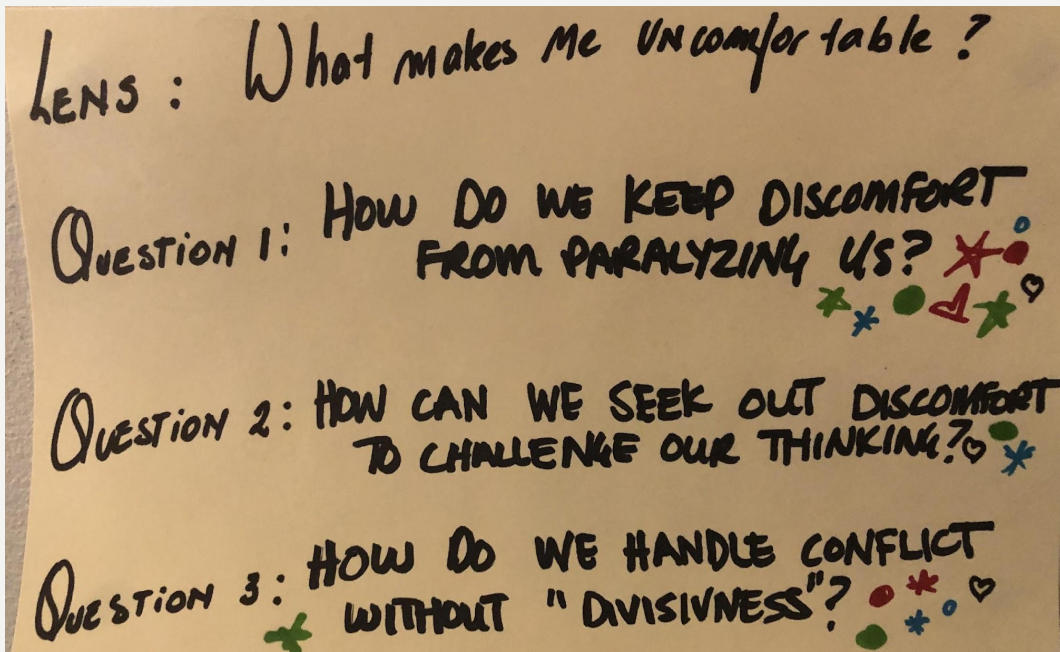 LENS: What makes me uncomfortable?
QUESTION 1: HOW DO WE KEEP DISCOMFORT
FROM PARALYZING US?
QUESTION 2: HOW CAN WE SEEK OUT DISCOMFORT
TO CHALLENGE OUR THINKING?
QUESTION 3: HOW DO WE HANDLE CONFLICT
WITHOUT "DIVISIVNESS"?